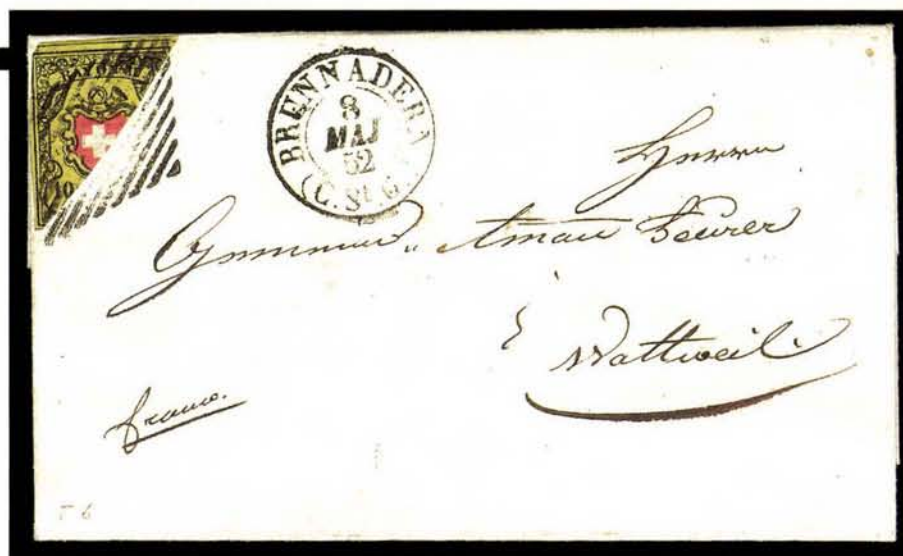 10
BRENNADERN
8
MAJ
52
(C. St. G.)
Herrn
Gemeind. Amau Beurer
Wattweil.
franco.
T 6